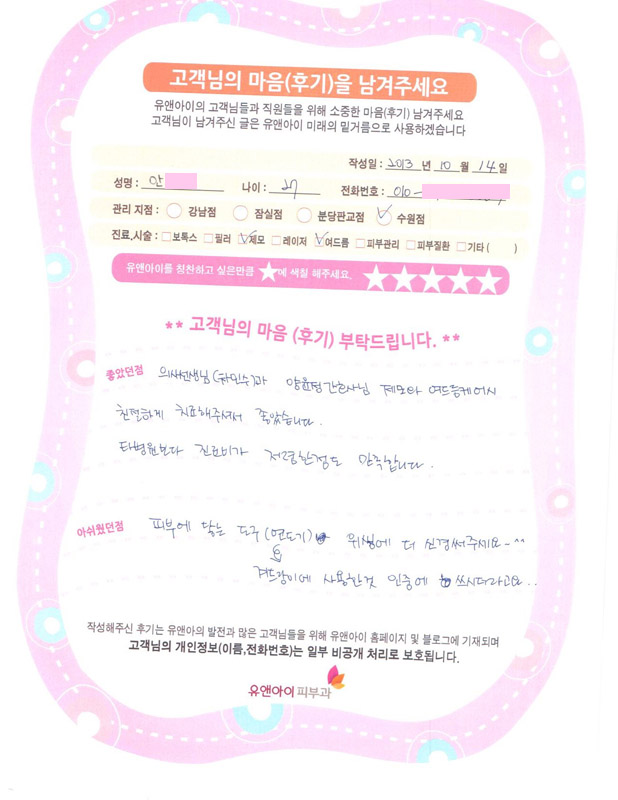 고객님의 마음(후기)을 남겨주세요
유앤아이의 고객님들과 직원들을 위해 소중한 마음(후기) 남겨주세요
고객님이 남겨주신 글은 유앤아이 미래의 밑거름으로 사용하겠습니다
작성일 : 2013 년 10 월 14 일
성명 : 안 나이 : 27 전화번호 : 010 -
관리 지점 : 강남점 잠실점 분당판교점 수원점
진료,시술 : 보톡스 필러 제모 레이저 여드름 피부관리 피부질환 기타 ( )
유앤아이를 칭찬하고 싶은만큼 ★에 색칠 해주세요. ★★★★★
** 고객님의 마음 (후기) 부탁드립니다. **
좋았던점 의사선생님(차민수)과 간호사님 제모와 여드름케어시
친절하게 치료해주셔서 좋았습니다.
타병원보다 진료비가 저렴한점도 만족합니다.
아쉬웠던점 피부에 닿는 도구(면도기) 위생에 더 신경써주세요~^^
겨드랑이에 사용한것 인중에 쓰시더라고요..
작성해주신 후기는 유앤아의 발전과 많은 고객님들을 위해 유앤아이 홈페이지 및 블로그에 기재되며
고객님의 개인정보(이름,전화번호)는 일부 비공개 처리로 보호됩니다.
유앤아이피부과